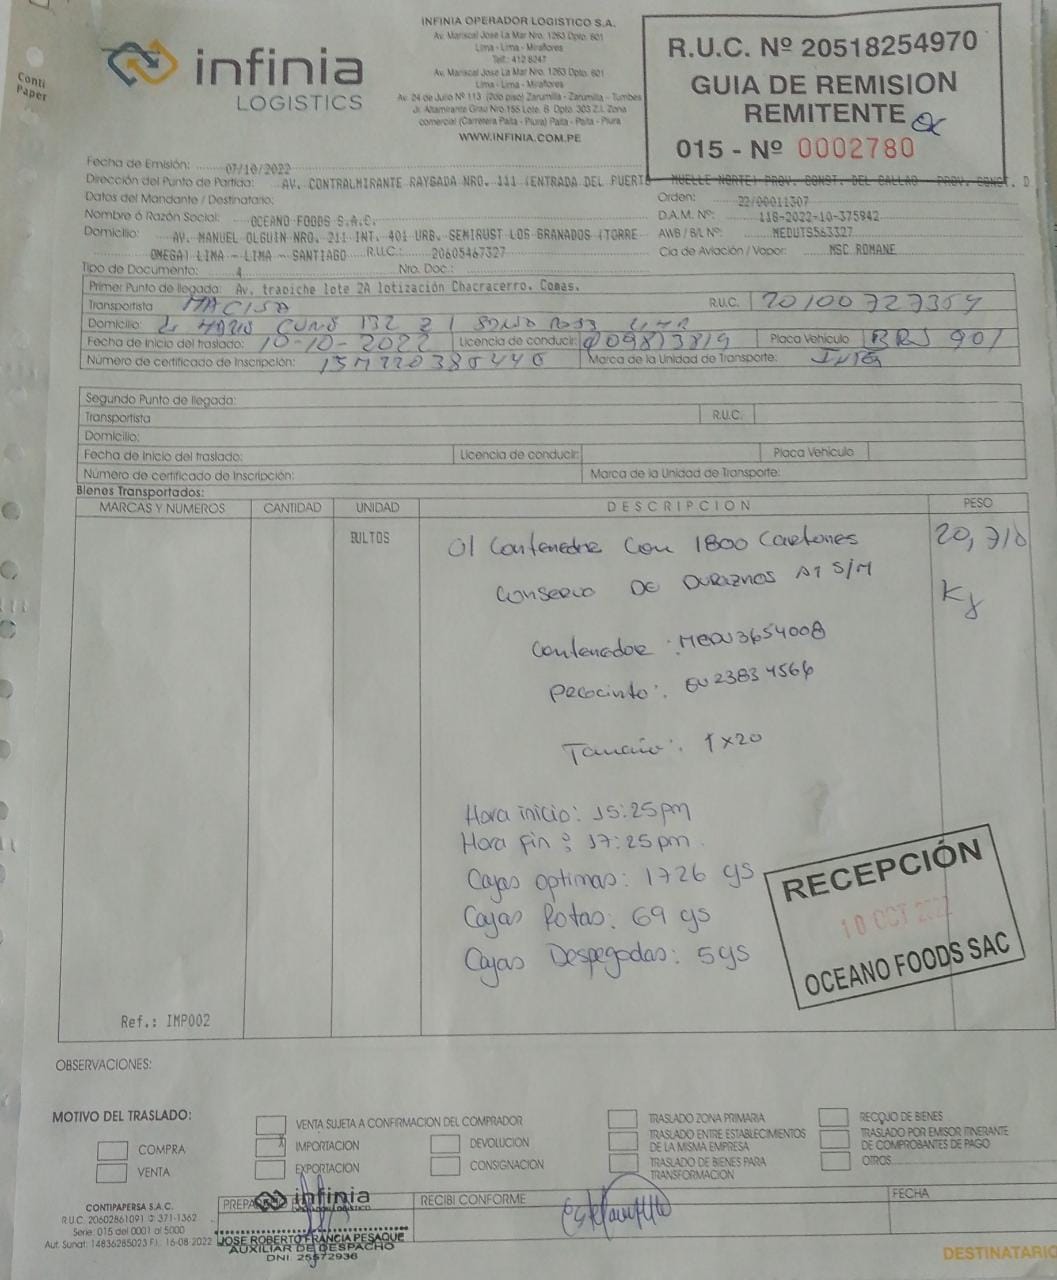 Conti
Paper
infinia
LOGISTICS
INFINIA OPERADOR LOGISTICO S.A.
Av. Mariscal Jose La Mar Nro. 1263 Dpto. 601
Lima - Lima - Miraflores
Telf.: 412 8247
Av. Mariscal Jose La Mar Nro. 1263 Dpto. 601
Lima - Lima - Miraflores
Av. 24 de Julio Nº 113 (2do piso) Zarumilla - Zarumilla - Tumbes
Jr. Altamirante Grau Nro.155 Lote. B Dpto. 303 Z.I. Zona
comercial (Carretera Paita - Piura) Paita - Paita - Piura
WWW.INFINIA.COM.PE
R.U.C. Nº 20518254970
GUIA DE REMISION
REMITENTE
015 - Nº 0002780
Fecha de Emisión: 07/10/2022
Dirección del Punto de Partida: AV. CONTRALMIRANTE RAYGADA NRO. 111 (ENTRADA DEL PUERTO MUELLE NORTE) PROV. CONST. DEL CALLAO - PROV. CONST. D
Datos del Mandante / Destinatario: Orden: 22/00011307
Nombre ó Razón Social: OCEANO FOODS S.A.C. D.A.M. Nº: 118-2022-10-375942
Domicilio: AV. MANUEL OLGUIN NRO. 211 INT. 401 URB. SEMIRUST LOS GRANADOS (TORRE AWB / B/L Nº: MEDUTS563327
OMEGA) LIMA - LIMA - SANTIAGO R.U.C.: 20605467327 Cía de Aviación / Vapor: MSC ROMANE
Tipo de Documento: 4 Nro. Doc.:
Primer Punto de llegada: Av. trapiche lote 2A lotización Chacracerro. Comas.
Transportista MACISA R.U.C. 20100727359
Domicilio:
Fecha de Inicio del traslado: 10-10-2022 Licencia de conducir: Q09813819 Placa Vehículo BRJ 901
Número de certificado de Inscripción: Marca de la Unidad de Transporte:
Segundo Punto de llegada:
Transportista R.U.C.
Domicilio:
Fecha de Inicio del traslado: Licencia de conducir: Placa Vehículo
Número de certificado de Inscripción: Marca de la Unidad de Transporte:
Bienes Transportados:
MARCAS Y NUMEROS CANTIDAD UNIDAD DESCRIPCION PESO
BULTOS 01 Contenedor Con 1800 Cartones 20,710
Conserva DE DURAZNOS AT S/M Kg
Contenedor: MEDU3654008
Precinto: EU23834566
Tamaño: 1x20
Hora inicio: 15:25pm
Hora fin: 17:25pm.
Cajas Optimas: 1726 cjs
Cajas Rotas: 69 cjs
Cajas Despegadas: 5 cjs
RECEPCIÓN
10 OCT 2022
OCEANO FOODS SAC
Ref.: IMP002
OBSERVACIONES:
MOTIVO DEL TRASLADO:
COMPRA
VENTA
VENTA SUJETA A CONFIRMACION DEL COMPRADOR
X IMPORTACION
EXPORTACION
DEVOLUCION
CONSIGNACION
TRASLADO ZONA PRIMARIA
TRASLADO ENTRE ESTABLECIMIENTOS
DE LA MISMA EMPRESA
TRASLADO DE BIENES PARA
TRANSFORMACION
RECOJO DE BIENES
TRASLADO POR EMISOR ITINERANTE
DE COMPROBANTES DE PAGO
OTROS
CONTIPAPERSA S.A.C.
R.U.C. 20602861091 371-1362
Serie: 015 del 0001 al 5000
Aut. Sunat: 14836285023 F.I. 16-08-2022
infinia
JOSE ROBERTO FRANCIA PESAQUE
AUXILIAR DE DESPACHO
DNI. 25572936
RECIBI CONFORME
FECHA
DESTINATARIO